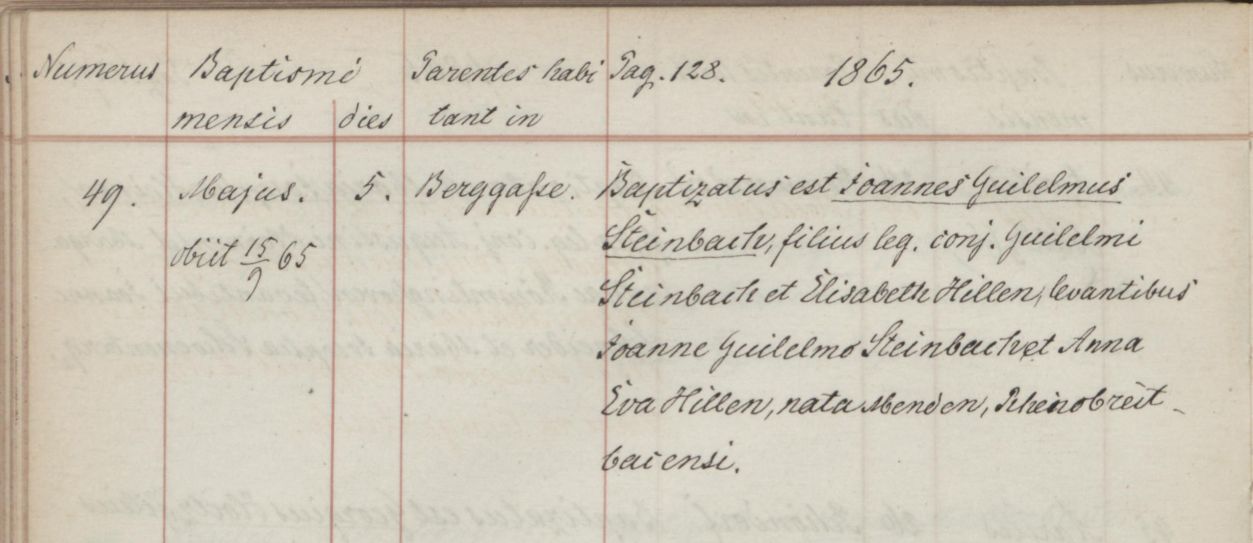 Numerus Baptismi Parentes habi Pag. 128. 1865.
mensis dies tant in
49. Majus. 5. Berggaße. Baptizatus est Joannes Guilelmus
obiit 15/9 65 Steinbach, filius leg. conj. Guilelmi
Steinbach et Elisabeth Hillen, levantibus
Joanne Guilelmo Steinbach et Anna
Eva Hillen, nata Menden, Rhenobreit-
bacensi.